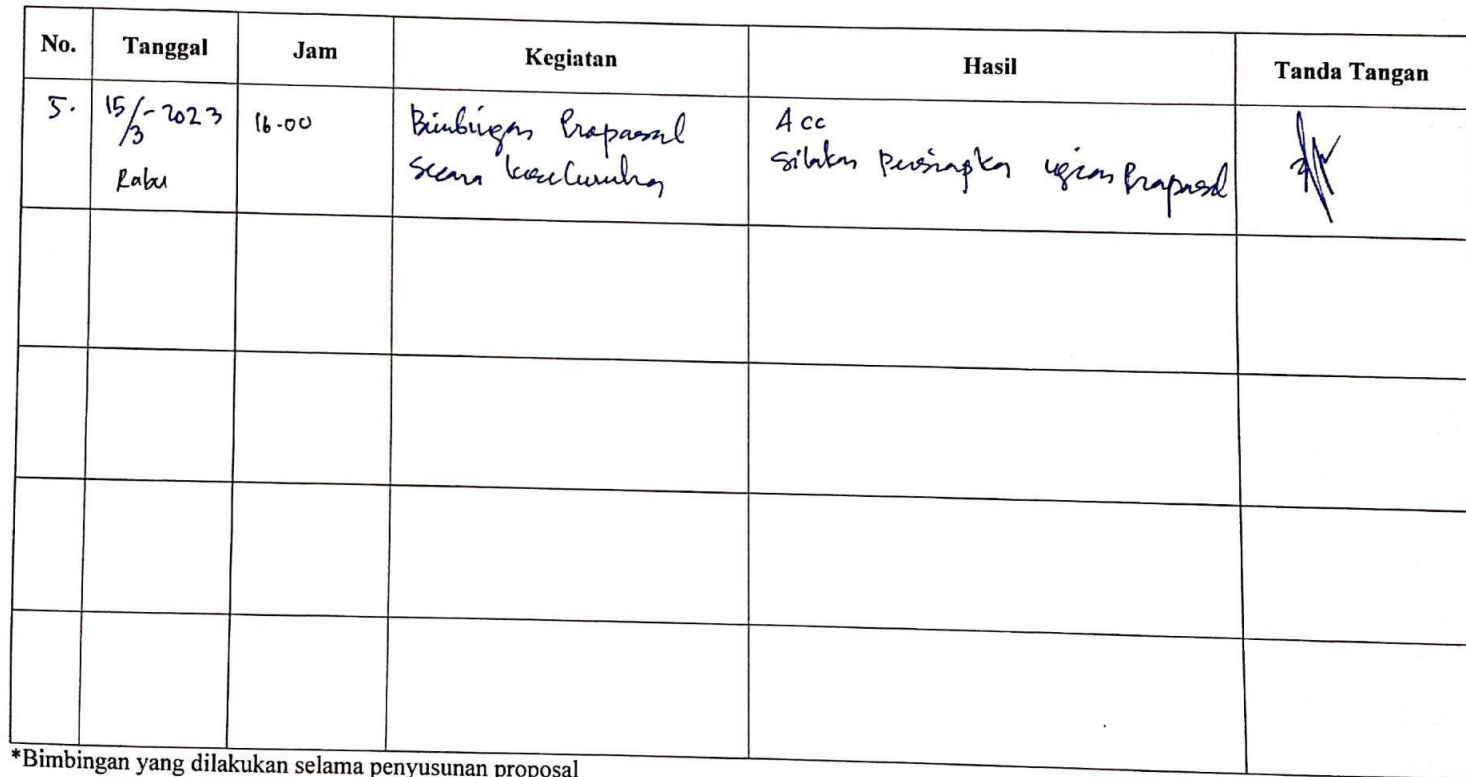 No. Tanggal Jam Kegiatan Hasil Tanda Tangan
5. 15/3-2023 16.00 Bimbingan Proposal Acc
Rabu secara keseluruhan silakan persiapkan ujian Proposal
*Bimbingan yang dilakukan selama penyusunan proposal